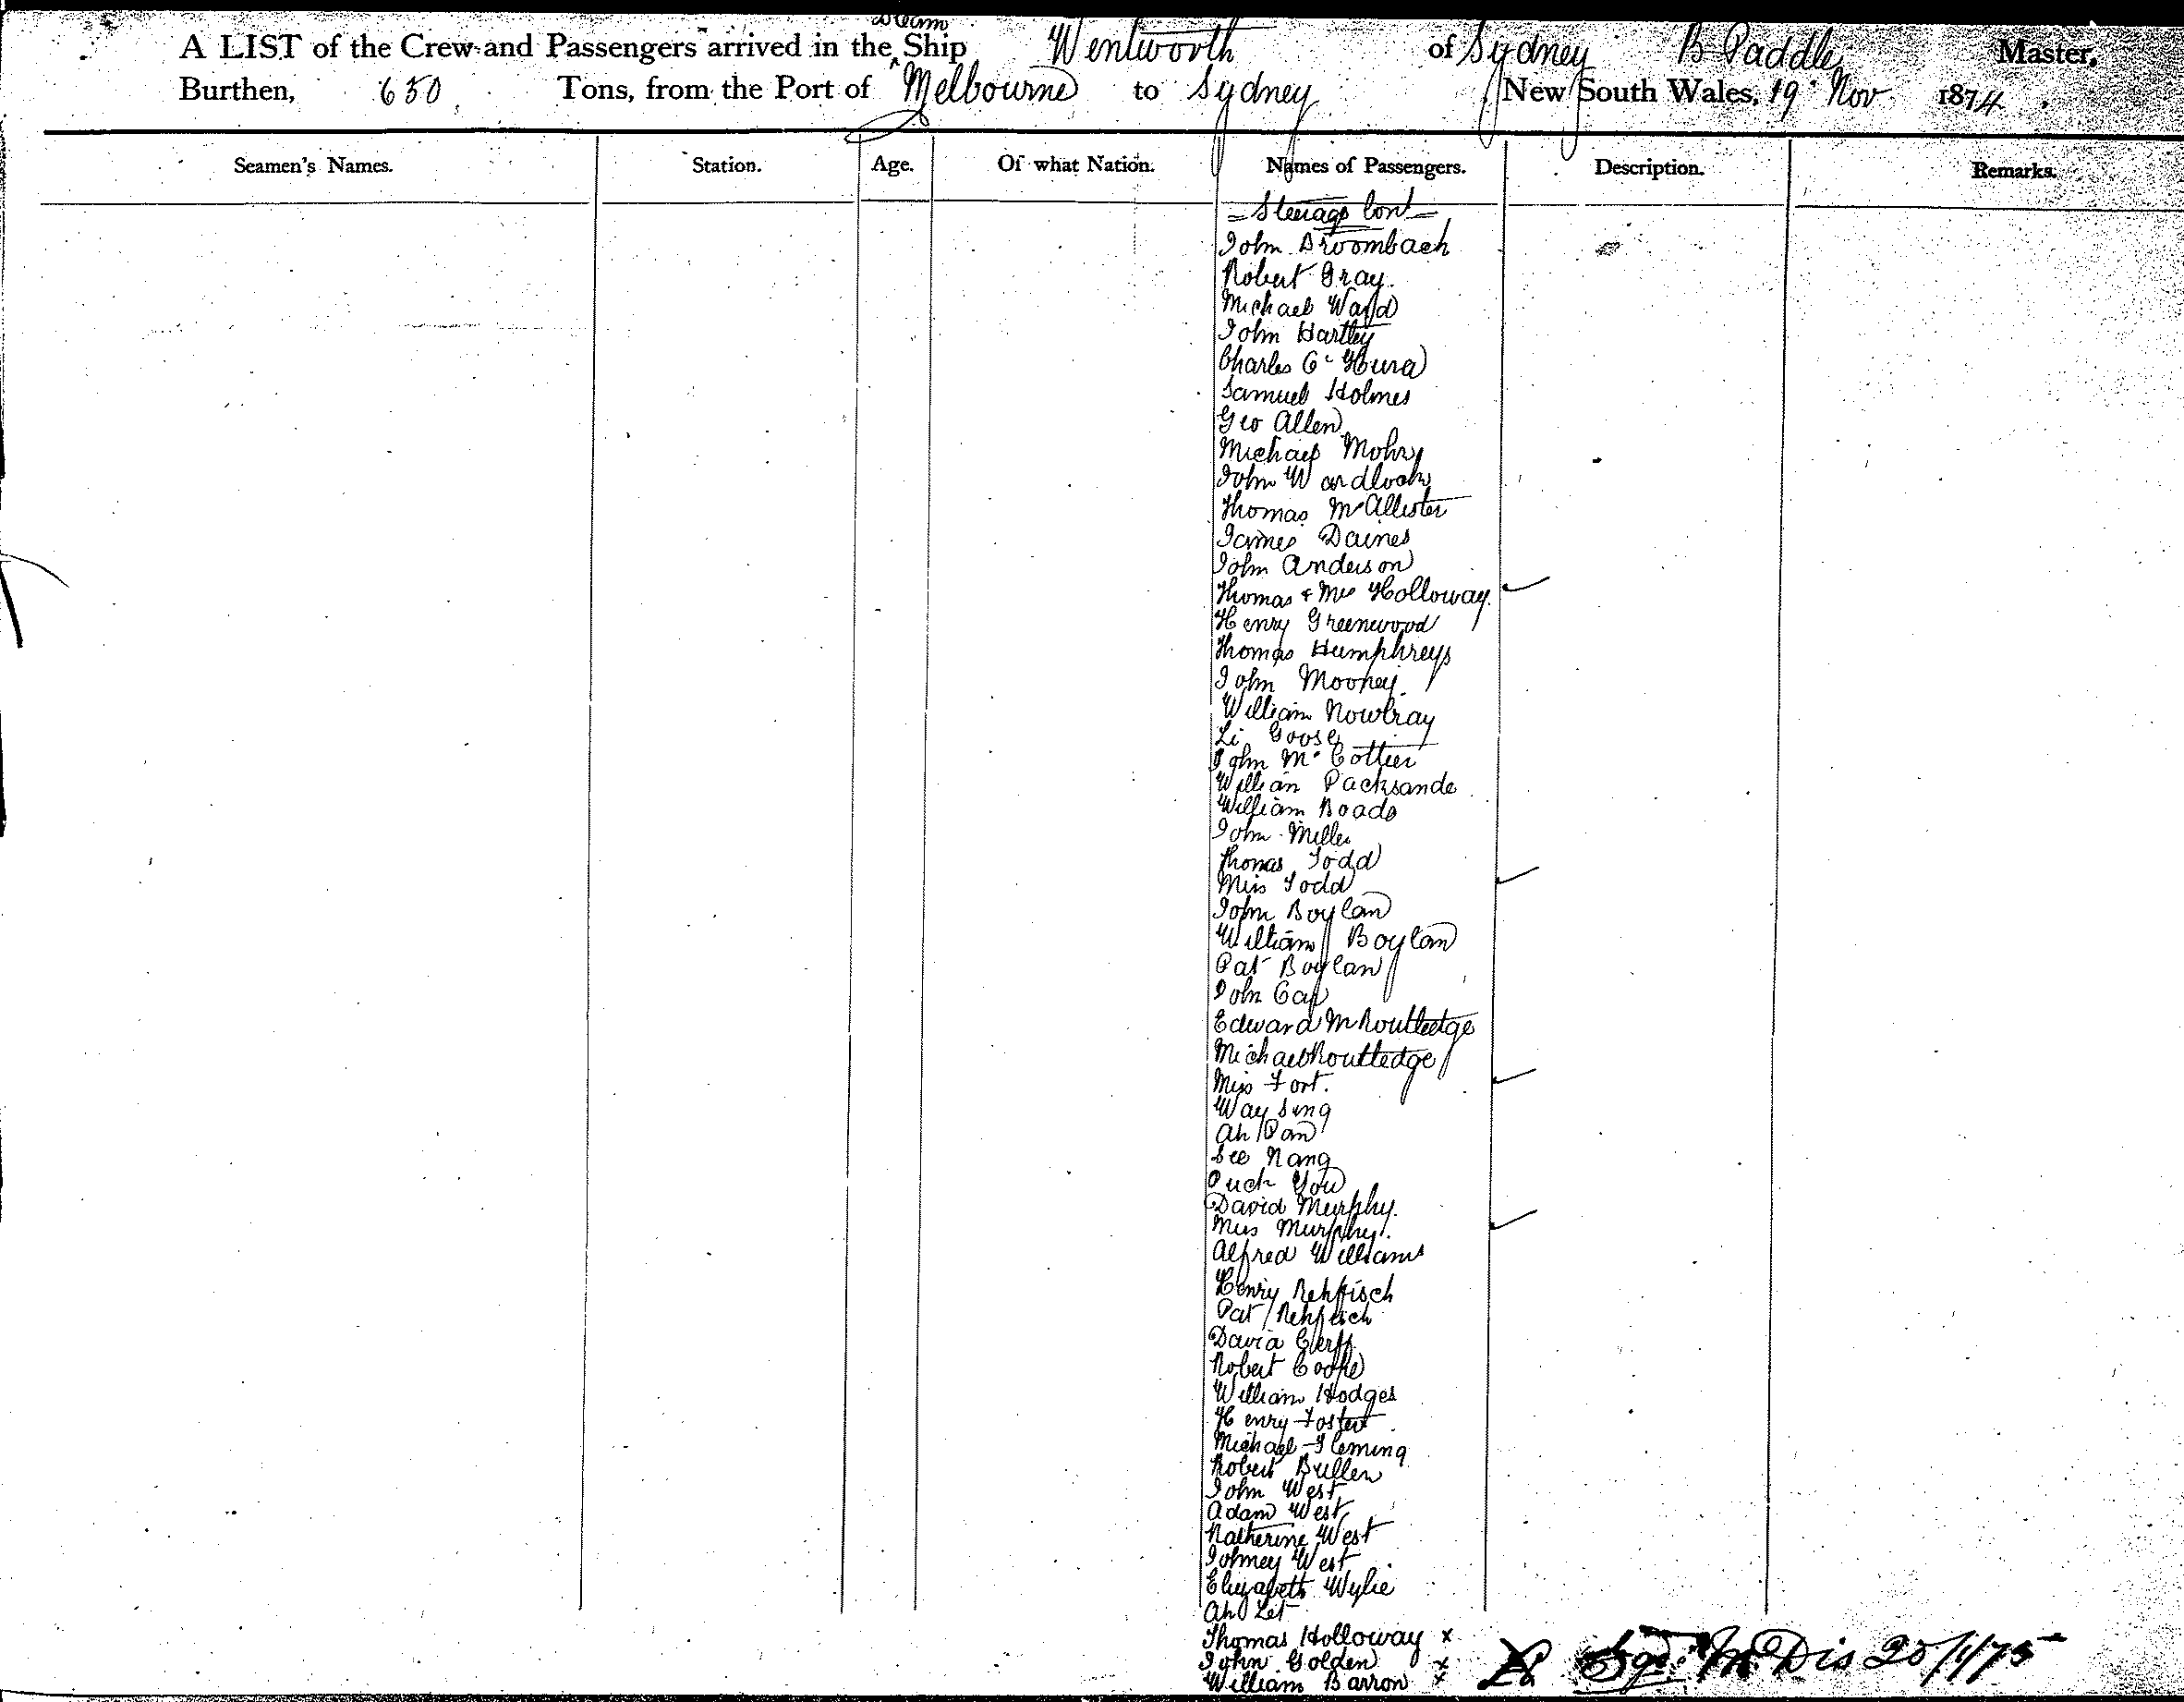 Steam
A LIST of the Crew and Passengers arrived in the ^ Ship Wentworth of Sydney B Paddle Master,
Burthen, 650 Tons, from the Port of Melbourne to Sydney New South Wales, 19 Nov 1874
Seamen's Names. Station. Age. Of what Nation. Names of Passengers. Description. Remarks.
= Steerage Cont =
John Broombach
Robert Gray
Michael Ward
John Hartley
Charles
Samuel Holmes
Geo Allen
Michael Mohr
John
Thomas McAllister
James Daines
John Anderson
Thomas & Mrs Holloway
Henry Greenwood
Thomas Humphreys
John Mooney
William Nowlray
Li Goose
John McCottier
William Packsande
William Boade
John Miller
Thomas Todd
Miss Todd
John Boylan
William Boylan
Pat Boylan
John
Edward M Routledge
Michael Routledge
Miss Fort.
Way Sing
Ah Pan
See Nang
You
David Murphy.
Mrs Murphy.
Alfred Williams
Henry Rehfisch
Pat Rehfisch
David Cerff
Robert Cooke
William Hodges
Henry Foster
Michael Fleming
Robert Bullen
John West
Adam West
Katherine West
Johney West
Elizabeth Wylie
Ah Let
Thomas Holloway x
John Golden x
William Barron x
Dis 20/1/75